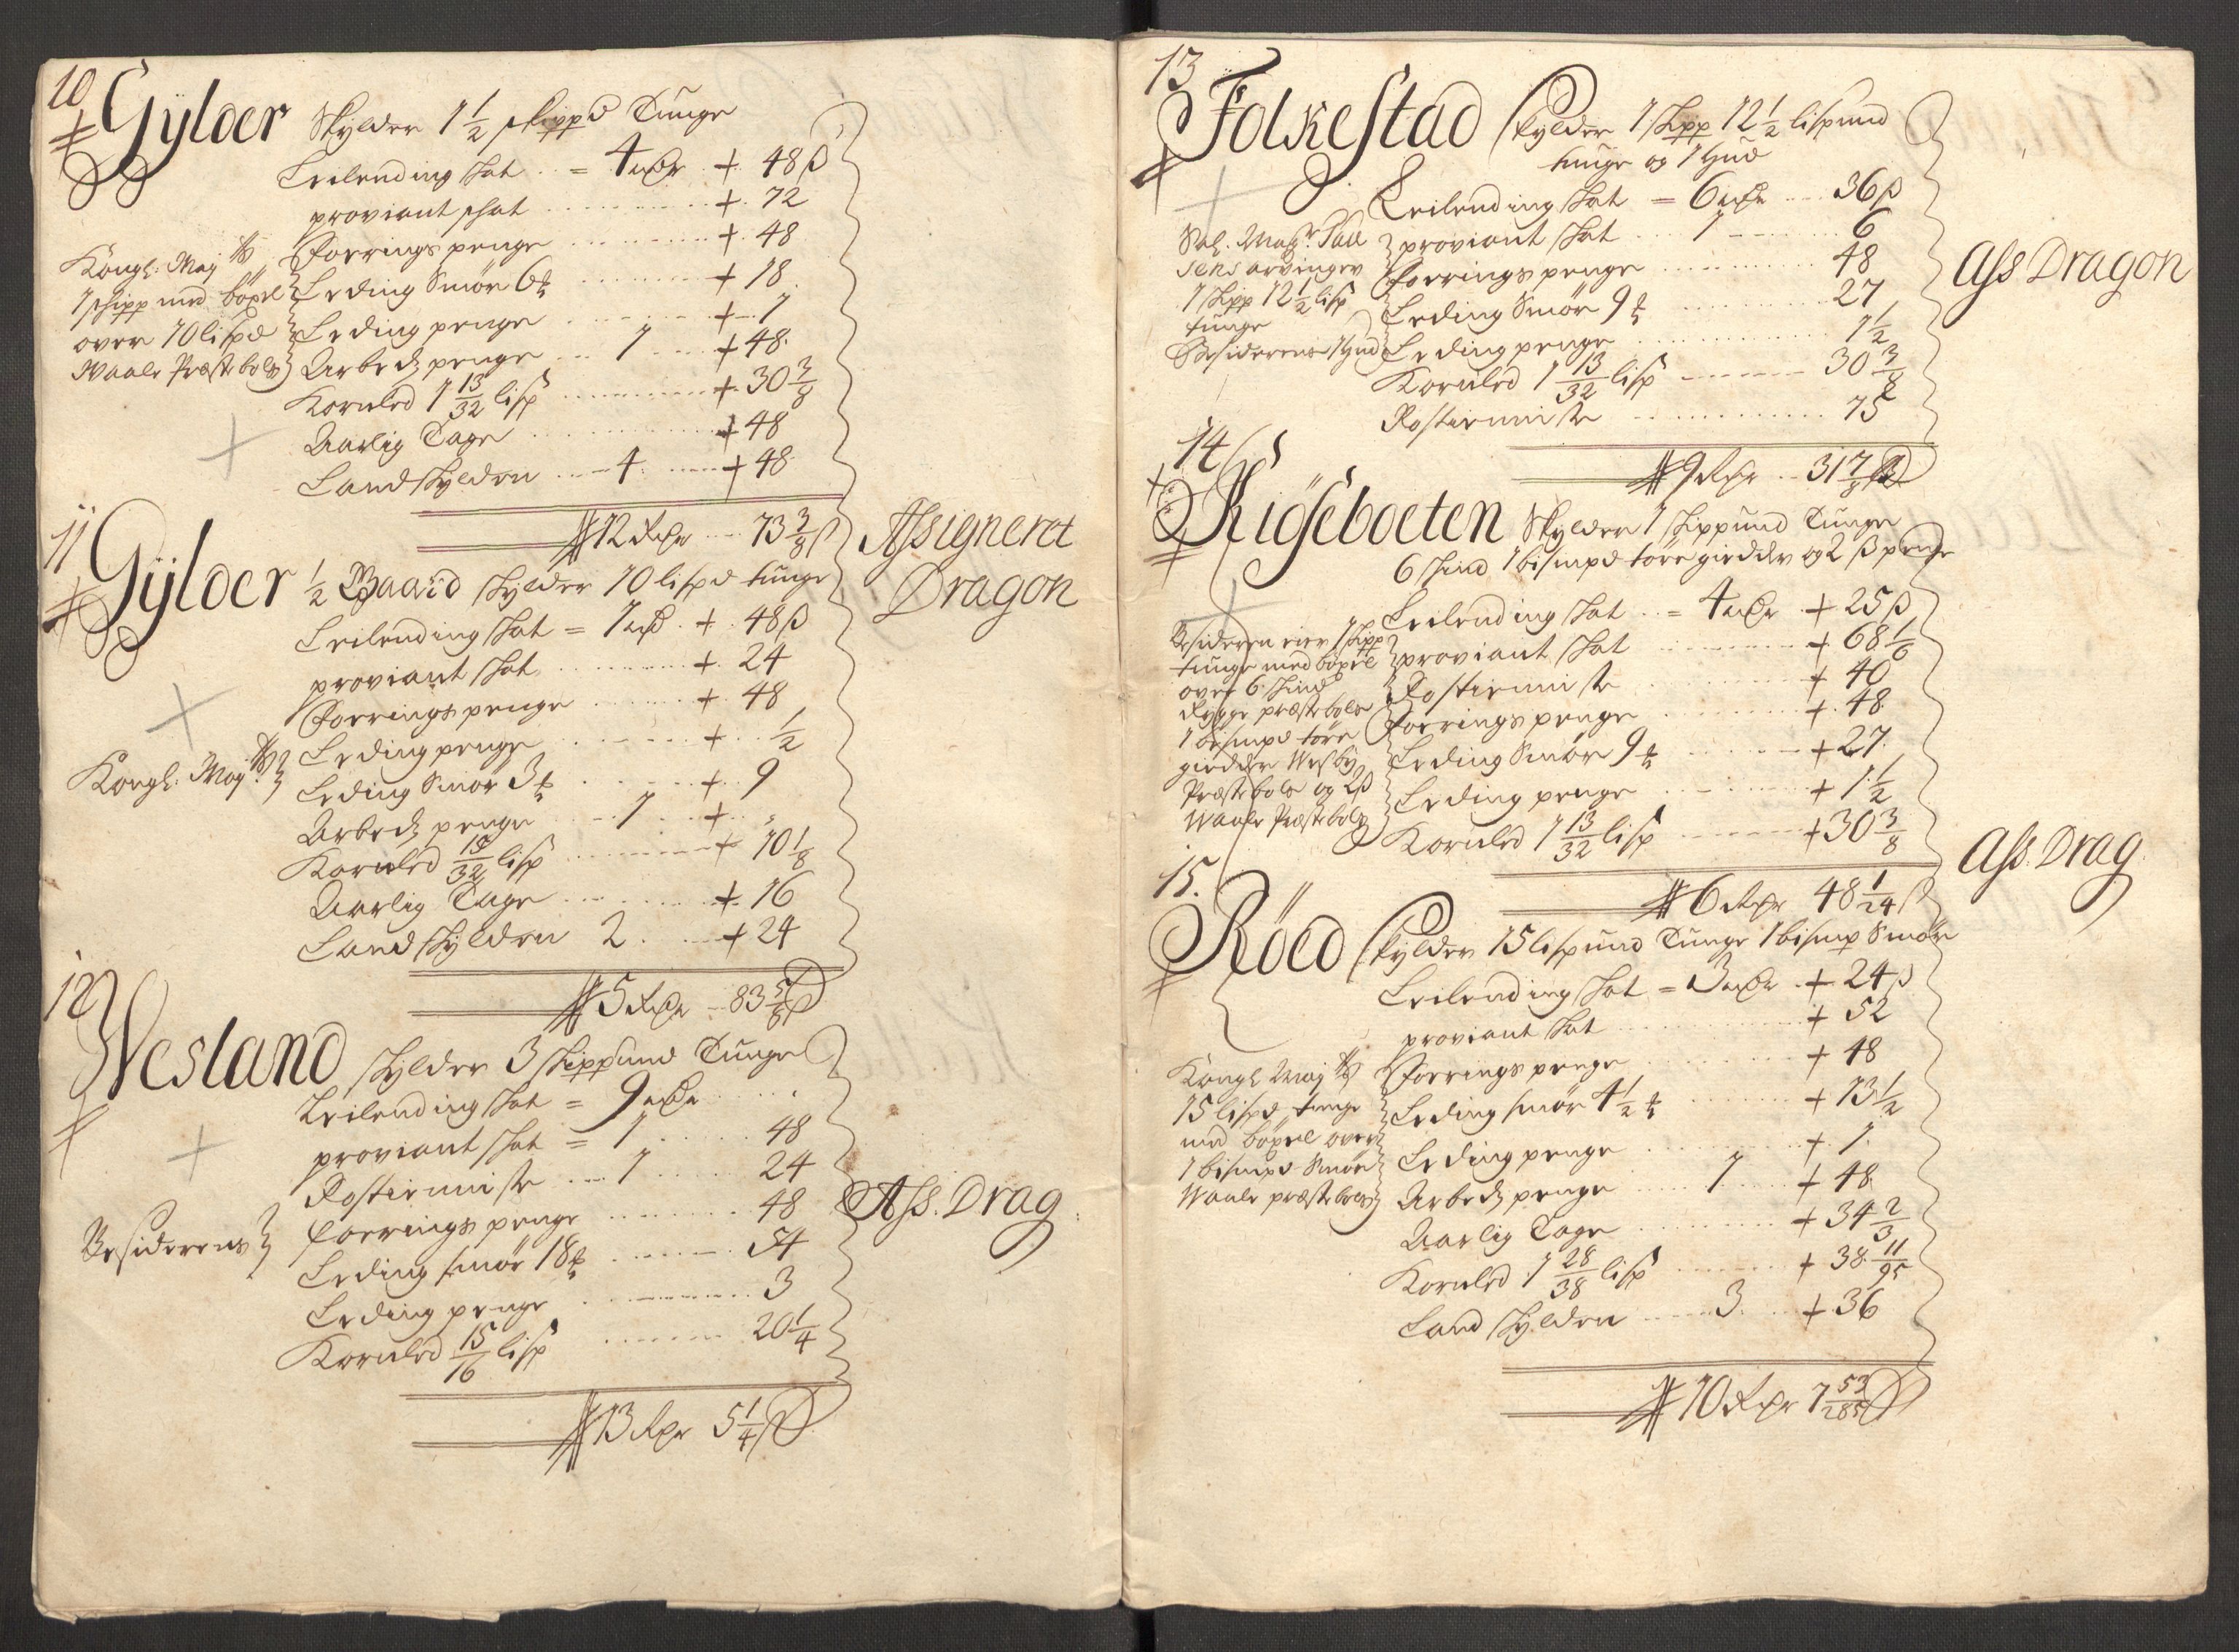 10
Gylder Skylder 1 1/2 skippd Tunge
Leilending skat .. = 4 rdr + 48 ß
proviant skat + 72
forrings penge + 48
Leding Smör 6 ℔ + 18
Leding penge + 1
Arbeds penge 1 + 48
Kornled 1 13/32 lisp + 30 3/8
Aarlig Tage + 48
Landskylden 4 + 48
Kongl: May tts
1 skipp med böxel
over 10 lispd
Waale Præstebols
12 Rdr 73 3/8 ß
11
Gylder 1/2 Gaard skylder 10 lispd tunge
Assigneret
Dragon
Leilending skat = 1 rd + 48 ß
proviant skat + 24
forrings penge + 48
Leding penge + 1/2
Leding Smör 3 ℔ + 9
Arbeds penge 1 +
Kornled 15/32 lisp + 10 1/8
Aarlig Tage + 16
Landskylden 2 + 24
Kongl: May tts
5 Rdr 83 5/8 ß
12
Wesland skylder 3 skippund Tunge
Leilending skat = 9 rdr
proviant skat = 1 48
Rostieniste 1 24
forrings penge 48
Leding smör 18 ℔ 54
Leding penge 3
Kornled 15/16 lisp 20 1/4
Besiderens
Ass. Drag
13 Rdr 5 1/4 ß
13
Folkestad skylder 1 skpp 12 1/2 lispund
tunge og 1 Hud
Leilending skat = 6 rdr 36 ß
proviant skat 1 6
forrings penge 48
Leding Smör 9 ℔ 27
Leding penge 1 1/2
Kornled 1 13/32 lisp 30 3/8
Rostieniste 75
Sal. Mag:r Pall
sens arvinger
1 skpp 12 1/2 lisp
tunge
Besiderens 1 Hud
Ass Dragon
9 Rdr 31 7/8 ß
14
Rigseboeten Skylder 1 skippund Tunge
6 skind 1 bismpd töre giedder og 2 ß penge
Leilending skat .. = 4 rdr + 25 ß
proviant skat + 68 1/6
Rostieniste + 40
forrings penge + 48
Leding Smör 9 ℔ + 27
Leding penge + 1 1/2
Kornled 1 13/32 lisp + 30 3/8
Besideren eier 1 skpp
tunge med böxel
over 6 skind
Rygge præstebole
1 bismpd töre
giedder Wesby
Præstebole og 2 ß
Waale Præstebols
6 Rdr 48 1/24 ß
Ass. Drag
15.
Röed skylder 15 lispund Tunge 1 bismp Smör
Leilending skat = 3 rdr + 24 ß
proviant skat + 52
forrings penge + 48
Leding smör 4 1/2 ℔ + 13 1/2
Leding penge + 1
Arbeds penge 1 + 48
Aarlig Tage + 34 2/3
Kornled 1 28/38 lisp + 38 11/95
Landskylden 3 + 36
Kongl May tts
15 lispd tunge
med böxel over
1 bismpd Smör
Waale præstebols
10 Rdr 7 53/285 ß